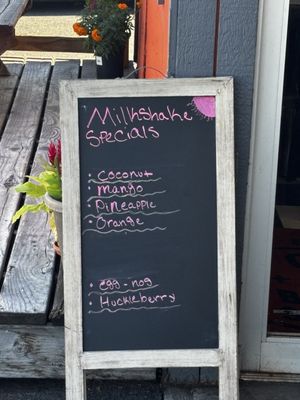 Milkshake
Specials
• Coconut
• Mango
• Pineapple
• Orange
• egg-nog
• Huckleberry